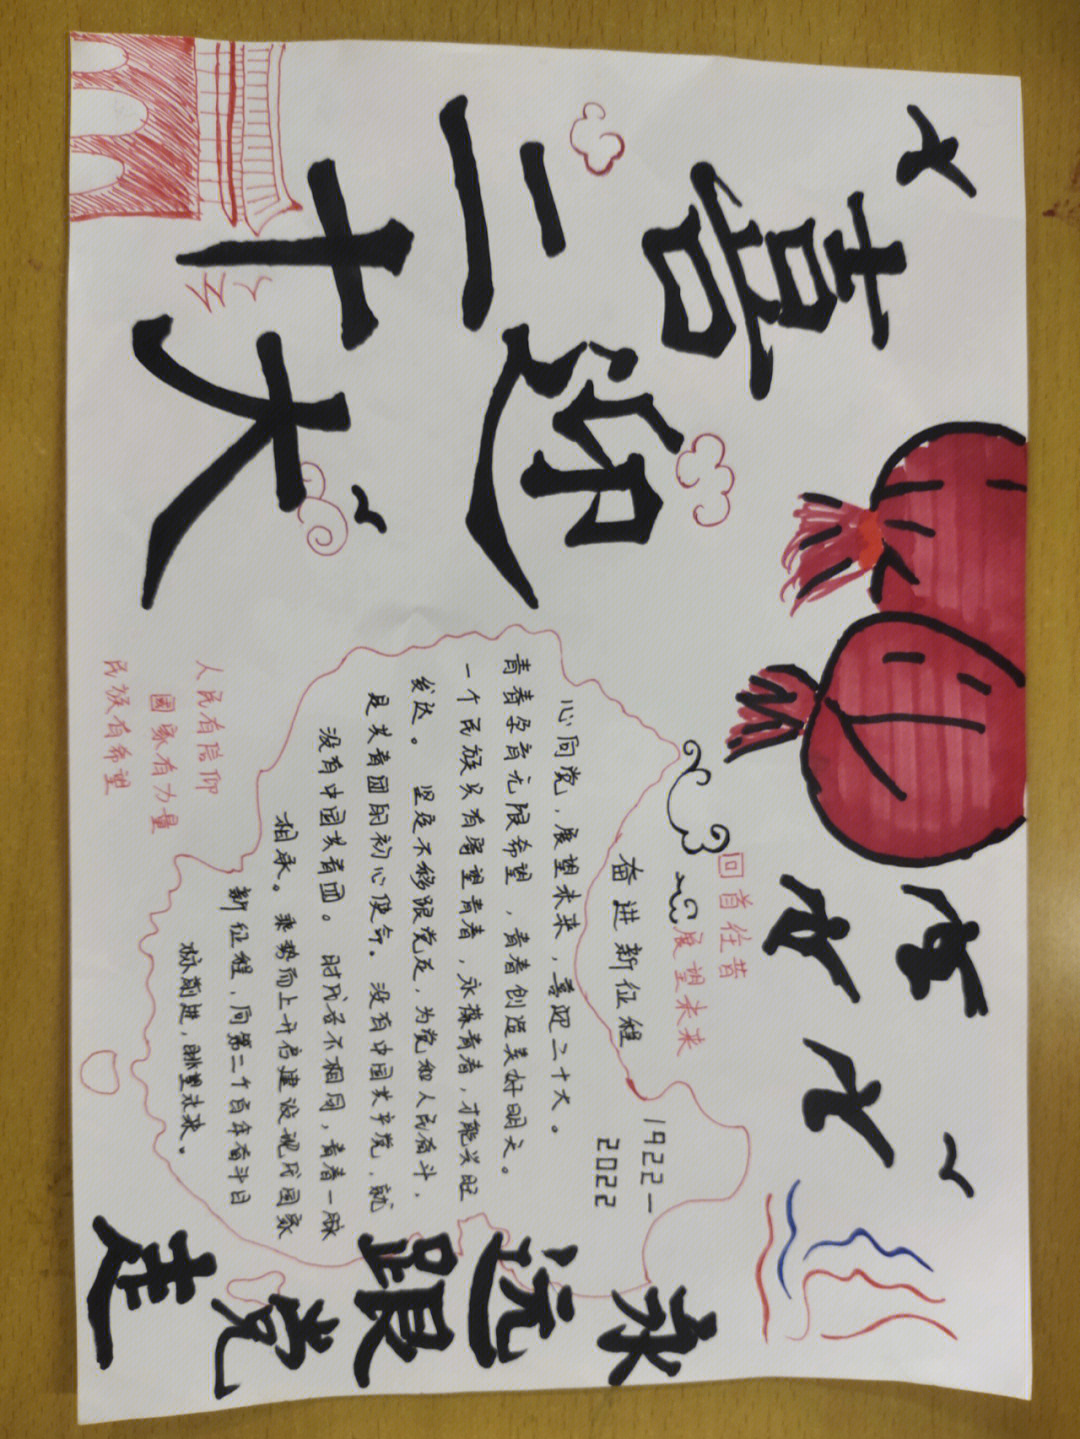 喜迎
二十大
永远跟党走
回首往昔
展望未来
奋进新征程
1922—
2022
心向党，展望未来，喜迎二十大。
青春孕育无限希望，青春创造美好明天。
一个民族只有寄望青春，永葆青春，才能兴旺
发达。 坚定不移跟党走，为党和人民奋斗，
是共青团的初心使命。没有中国共产党，就
没有中国共青团。时代各不相同，青春一脉
相承。乘势而上开启建设现代国家
新征程，向第二个百年奋斗目
标前进，眺望未来。
人民有信仰
国家有力量
民族有希望